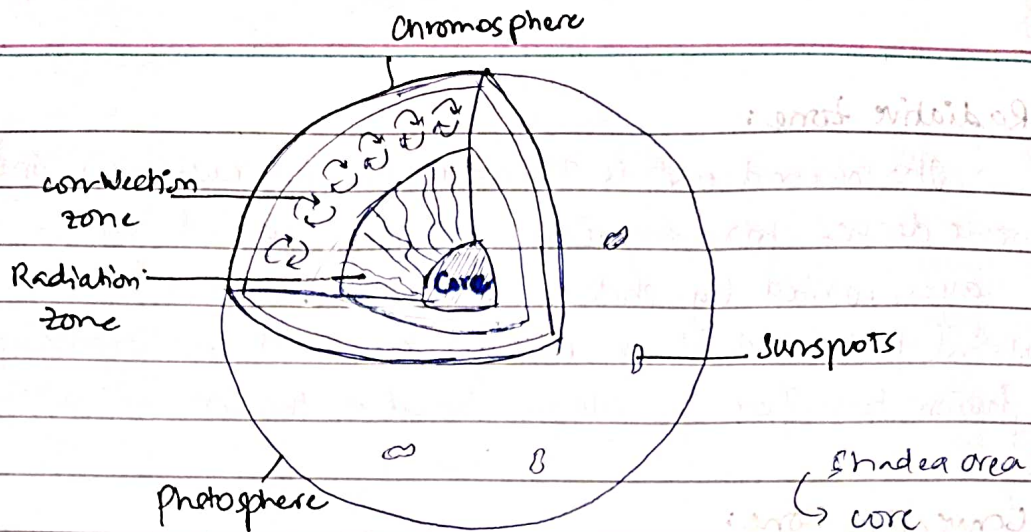 Chromosphere
convection
zone
Radiation
zone
Core
Sunspots
Photosphere
Shaded area
core